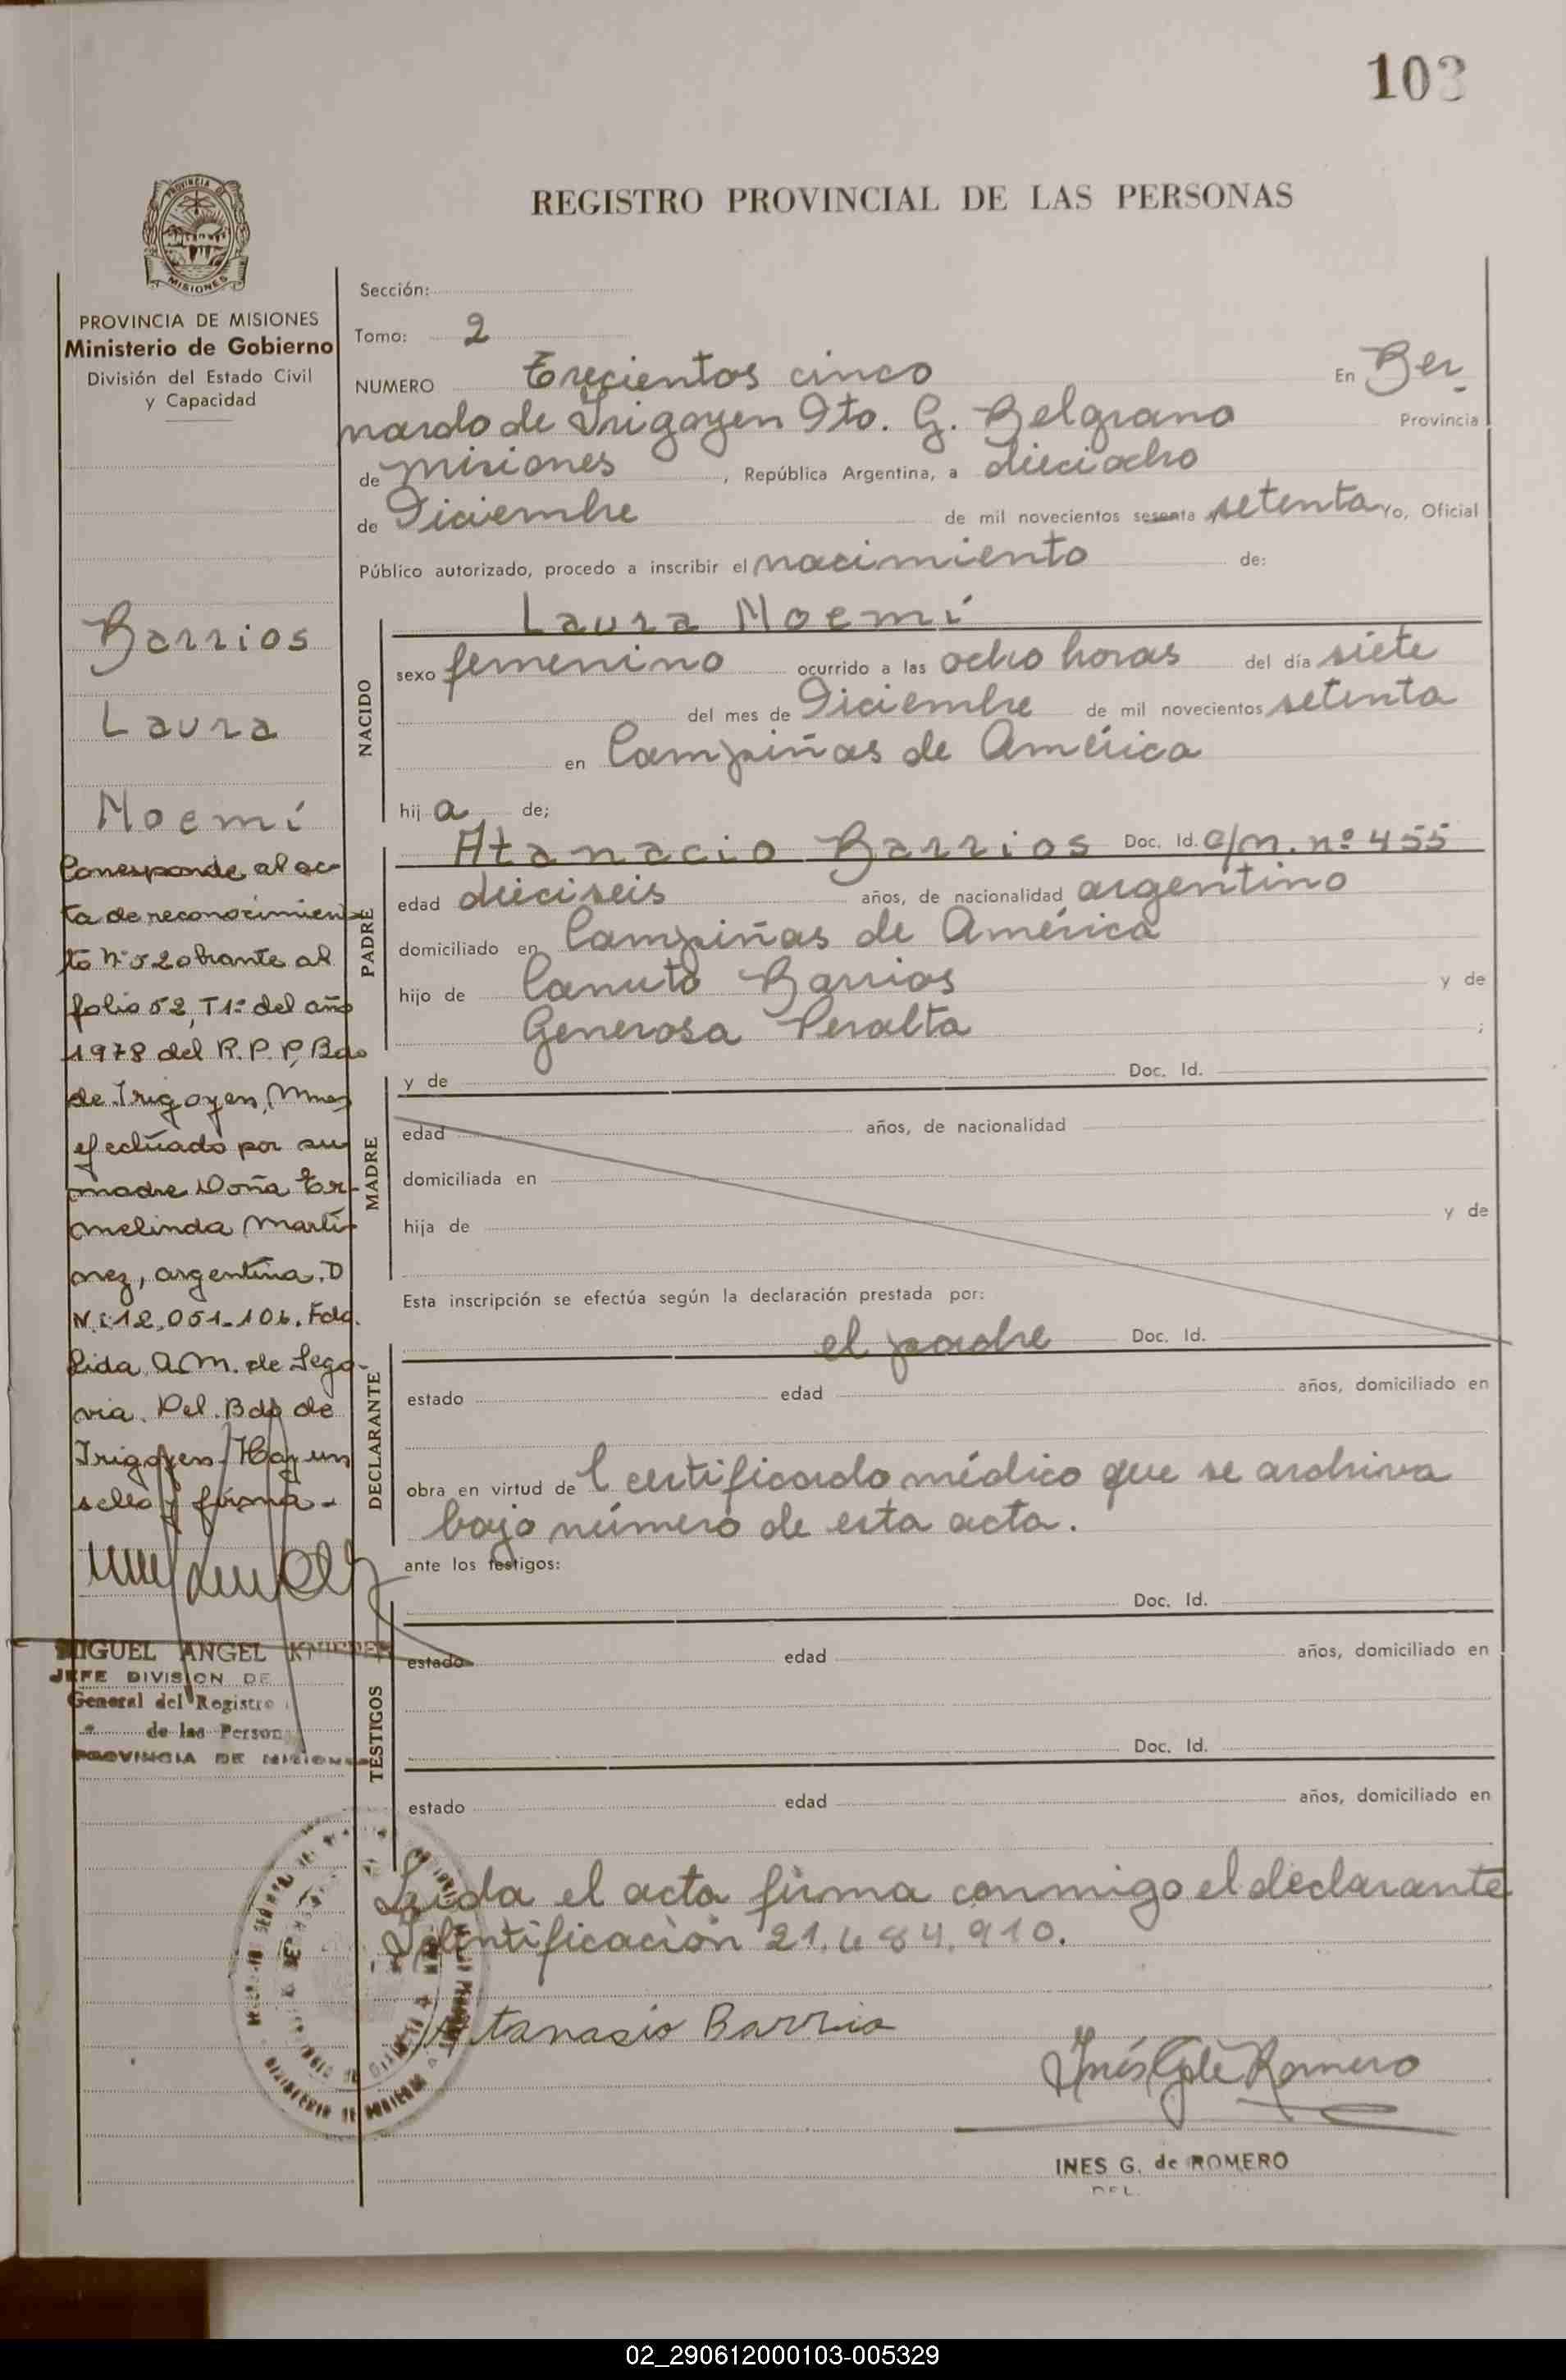 103
REGISTRO PROVINCIAL DE LAS PERSONAS
PROVINCIA DE
MISIONES
PROVINCIA DE MISIONES
Ministerio de Gobierno
División del Estado Civil
y Capacidad
Barrios
Laura
Noemí
Corresponde al ac-
ta de reconocimien-
to Nº 52 obrante al
folio 52, T 1º del año
1978 del R.P.P, Bdo
de Irigoyen, Mnes
efectuado por su
madre Doña Er-
melinda Martí-
nez, argentina. D
N.I 12.051.106. Fdo.
lida A.M. de Sego-
via. Del. Bdo de
Irigoyen. Hay un
sello y firma.-
MIGUEL ANGEL
JEFE DIVISION DE
General del Registro
de las Person
PROVINCIA DE MISIONES
Sección:
Tomo: 2
NUMERO Trecientos cinco En Ber-
nardo de Irigoyen Dto. G. Belgrano Provincia
de Misiones, República Argentina, a dieciocho
de Diciembre de mil novecientos sesenta y setenta Yo, Oficial
Público autorizado, procedo a inscribir el nacimiento de:
NACIDO
Laura Noemí
sexo femenino ocurrido a las ocho horas del día siete
del mes de Diciembre de mil novecientos setenta
en Campiñas de América
hij a de;
PADRE
Atanacio Barrios Doc. Id. C/N. nº 455
edad dieciseis años, de nacionalidad argentino
domiciliado en Campiñas de América
hijo de Canuto Barrios y de
Generosa Peralta ;
MADRE
y de Doc. Id.
edad años, de nacionalidad
domiciliada en
hija de y de
Esta inscripción se efectúa según la declaración prestada por:
DECLARANTE
el padre Doc. Id.
estado edad años, domiciliado en
obra en virtud de l certificado médico que se archiva
bajo número de esta acta.
ante los testigos:
TESTIGOS
Doc. Id.
estado edad años, domiciliado en
Doc. Id.
estado edad años, domiciliado en
Leida el acta firma conmigo el declarante
Identificación 21.684.910.
Atanasio Barrio
Inés G de Romero
INES G. de ROMERO
DEL.
02_290612000103-005329